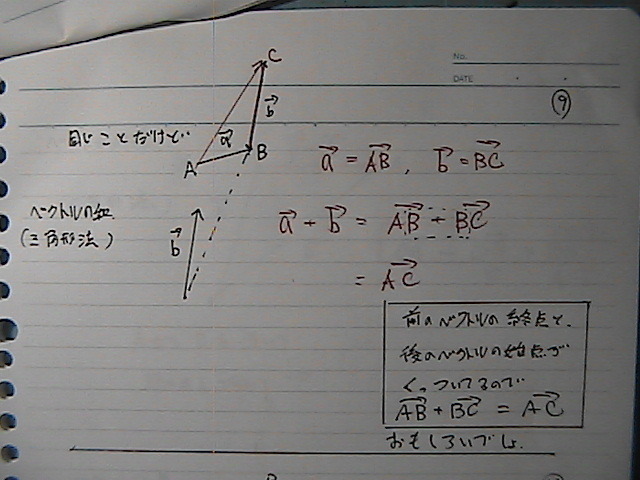 No.
DATE
⑨
C
b→
同じことだけど
a→
B
A
a→ = AB→, b→ = BC→
ベクトルの和
(三角形法)
b→
a→ + b→ = AB→ + BC→
= AC→
前のベクトルの終点と、
後のベクトルの始点が
くっついてるので
AB→ + BC→ = AC→
おもしろいでしょ.